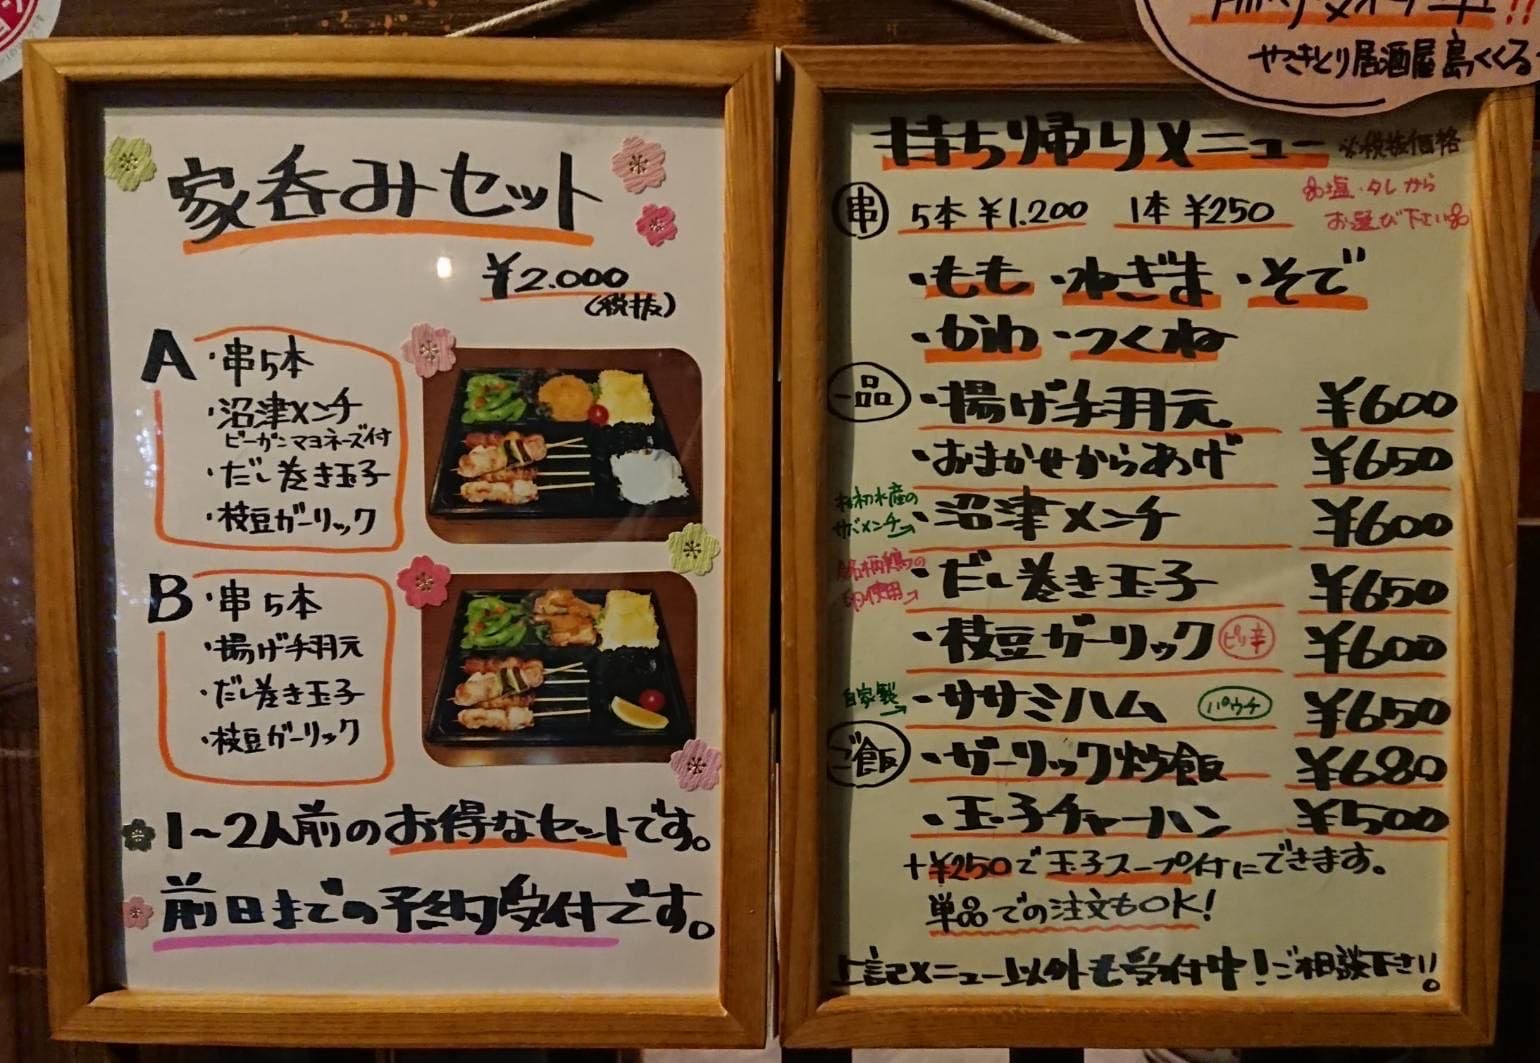 やきとり居酒屋 島くくる
家呑みセット
¥2.000
(税抜)
A
・串5本
・沼津メンチ
ビーガンマヨネーズ付
・だし巻き玉子
・枝豆ガーリック
B
・串5本
・揚げ手羽元
・だし巻き玉子
・枝豆ガーリック
1〜2人前のお得なセットです。
前日までの予約受付です。
持ち帰りメニュー ※税抜価格
串 5本 ¥1.200 1本 ¥250
塩・タレから
お選び下さい
・もも ・ねぎま ・そで
・かわ ・つくね
一品 ・揚げ手羽元 ¥600
・おまかせからあげ ¥650
水産の
サバメンチ→
・沼津メンチ ¥600
銘柄鶏の
卵使用→
・だし巻き玉子 ¥650
・枝豆ガーリック ピリ辛 ¥600
自家製→ ・ササミハム パウチ ¥650
ご飯 ・ガーリック炒飯 ¥680
・玉子チャーハン ¥500
+¥250で玉子スープ付にできます。
単品での注文もOK!
上記メニュー以外も受付中!ご相談下さい。